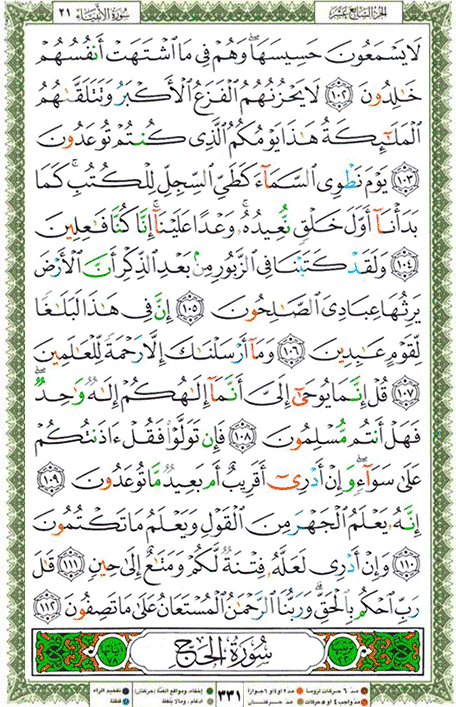 الجزء السابع عشر سورة الأنبياء ٢١
لَا يَسْمَعُونَ حَسِيسَهَا ۖ وَهُمْ فِي مَا ٱشْتَهَتْ أَنفُسُهُمْ
خَٰلِدُونَ ١٠٢ لَا يَحْزُنُهُمُ ٱلْفَزَعُ ٱلْأَكْبَرُ وَتَتَلَقَّىٰهُمُ
ٱلْمَلَٰٓئِكَةُ هَٰذَا يَوْمُكُمُ ٱلَّذِي كُنتُمْ تُوعَدُونَ
١٠٣ يَوْمَ نَطْوِي ٱلسَّمَآءَ كَطَيِّ ٱلسِّجِلِّ لِلْكُتُبِ ۚ كَمَا
بَدَأْنَآ أَوَّلَ خَلْقٍ نُّعِيدُهُۥ ۚ وَعْدًا عَلَيْنَآ ۚ إِنَّا كُنَّا فَٰعِلِينَ
١٠٤ وَلَقَدْ كَتَبْنَا فِي ٱلزَّبُورِ مِنۢ بَعْدِ ٱلذِّكْرِ أَنَّ ٱلْأَرْضَ
يَرِثُهَا عِبَادِيَ ٱلصَّٰلِحُونَ ١٠٥ إِنَّ فِي هَٰذَا لَبَلَٰغًا
لِّقَوْمٍ عَٰبِدِينَ ١٠٦ وَمَآ أَرْسَلْنَٰكَ إِلَّا رَحْمَةً لِّلْعَٰلَمِينَ
١٠٧ قُلْ إِنَّمَا يُوحَىٰٓ إِلَيَّ أَنَّمَآ إِلَٰهُكُمْ إِلَٰهٌ وَٰحِدٌ ۖ
فَهَلْ أَنتُم مُّسْلِمُونَ ١٠٨ فَإِن تَوَلَّوْا۟ فَقُلْ ءَاذَنتُكُمْ
عَلَىٰ سَوَآءٍ ۖ وَإِنْ أَدْرِيٓ أَقَرِيبٌ أَم بَعِيدٌ مَّا تُوعَدُونَ ١٠٩
إِنَّهُۥ يَعْلَمُ ٱلْجَهْرَ مِنَ ٱلْقَوْلِ وَيَعْلَمُ مَا تَكْتُمُونَ
١١٠ وَإِنْ أَدْرِي لَعَلَّهُۥ فِتْنَةٌ لَّكُمْ وَمَتَٰعٌ إِلَىٰ حِينٍ ١١١ قَٰلَ
رَبِّ ٱحْكُم بِٱلْحَقِّ ۗ وَرَبُّنَا ٱلرَّحْمَٰنُ ٱلْمُسْتَعَانُ عَلَىٰ مَا تَصِفُونَ ١١٢
سُورَةُ الحَجّ
٣٣١